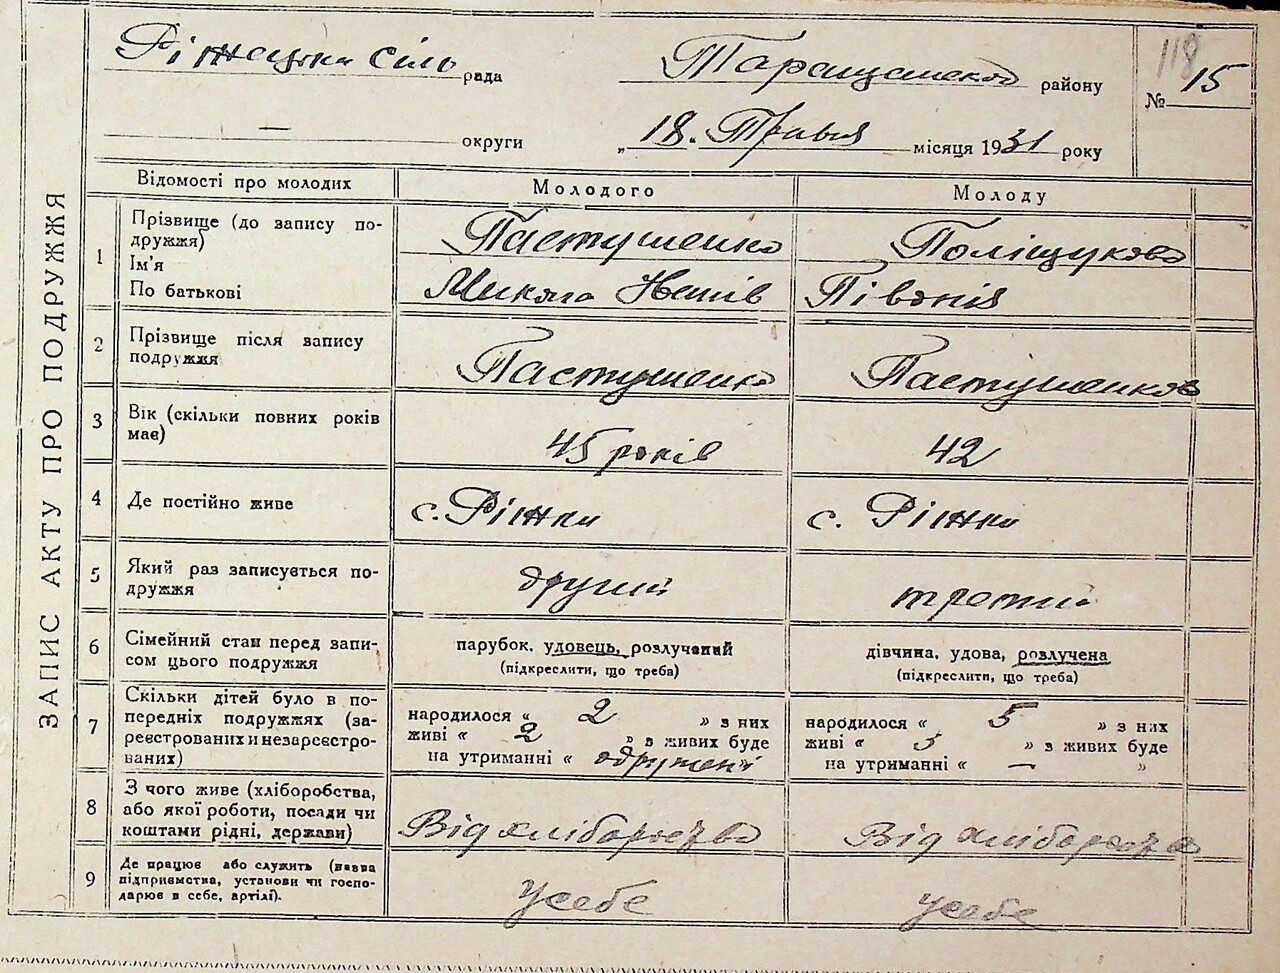 ЗАПИС АКТУ ПРО ПОДРУЖЖЯ
118
сіль рада Таращанського району № 15
— округи „18. Травня місяця 1931 року
Відомості про молодих Молодого Молоду
1 Прізвище (до запису подружжя) Пастушенко Поліщукова
Ім'я
По батькові Микола Півонія
2 Прізвище після запису подружжя Пастушенко Пастушенкова
3 Вік (скільки повних років має) 45 років 42
4 Де постійно живе с. Ріжки с. Ріжки
5 Який раз записується подружжя другий третий
6 Сімейний стан перед записом цього подружжя парубок, удовець, розлучений дівчина, удова, розлучена
(підкреслити, що треба) (підкреслити, що треба)
7 Скільки дітей було в попередніх подружжях (зареєстрованих и незареєстрованих)
народилося « 2 » з них народилося « 5 » з них
живі « 2 » в живих буде живі « » з живих буде
на утриманні « одружені на утриманні « — »
8 З чого живе (хліборобства, або якої роботи, посади чи коштами рідні, держави) Від хліборобства Від хліборобства
9 Де працює або служить (назва підприємства, установи чи господарює в себе, артілі). усебе усебе